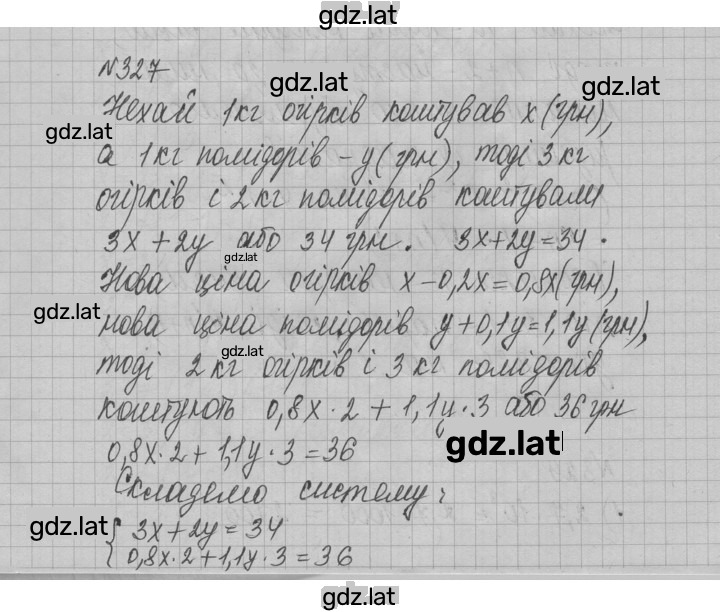 gdz.lat
№327
gdz.lat
Нехай 1кг огірків коштував x(грн),
gdz.lat
а 1кг помідорів – y(грн), тоді 3кг
огірків і 2кг помідорів коштували
3x + 2y або 34 грн. 3x+2y=34.
gdz.lat
Нова ціна огірків x-0,2x=0,8x(грн),
gdz.lat
нова ціна помідорів y+0,1y=1,1y(грн),
gdz.lat
тоді 2кг огірків і 3 кг помідорів
коштують 0,8x·2 + 1,1y·3 або 36грн
gdz.lat
0,8x·2+1,1y·3=36
Складемо систему:
gdz.lat
{ 3x+2y=34
{ 0,8x·2+1,1y·3=36
gdz.lat